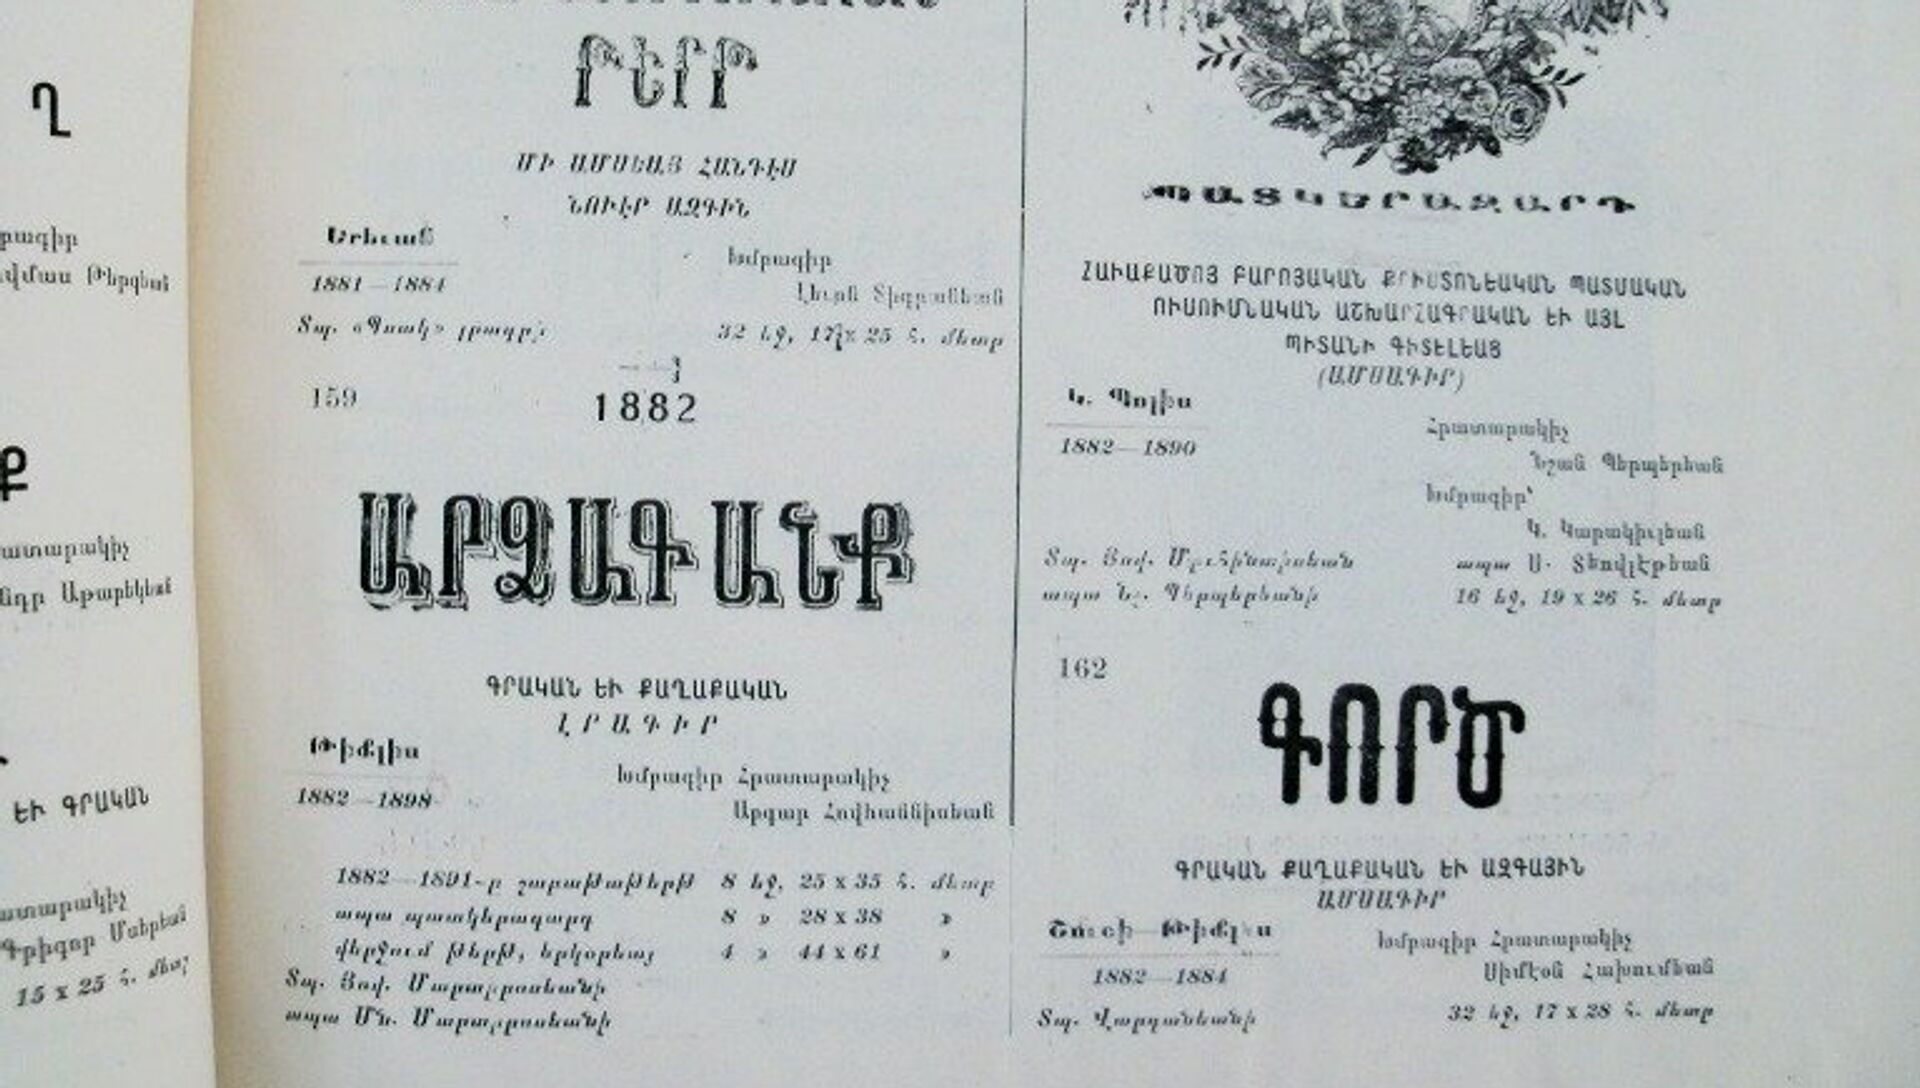 Ղ
րագիր
վմաս Թերզեան
Ք
ատարակիչ
նդր Աթարեկեան
ԵՒ ԳՐԱԿԱՆ
ատարակիչ
Գրիգոր Մսերեան
15 x 25 հ. մետր
ԹԵՐԹ
ՄԻ ԱՄՍԵԱՅ ՀԱՆԴԷՍ
ՆՈՒԷՐ ԱԶԳԻՆ
Երեւան
1881—1884
Խմրագիր
Լեւոն Տիգրանեան
Տպ. «Պսակ» լրագրի
32 էջ, 17 x 25 հ. մետր
159
1882
ԱՐՁԱԳԱՆՔ
ԳՐԱԿԱՆ ԵՒ ՔԱՂԱՔԱԿԱՆ
ԼՐԱԳԻՐ
Թիֆլիս
1882—1898
Խմրագիր Հրատարակիչ
Աբգար Հովհաննիսեան
1882—1891-ր շարաթաթերթ 8 էջ, 25 x 35 հ. մետր
ապա պատկերազարդ 8 » 28 x 38 »
վերջում թերթ, երկօրեայ 4 » 44 x 61 »
Տպ. Յով. Մարտիրոսեանի
ապա Մն. Մարտիրոսեանի
ՊԱՏԿԵՐԱԶԱՐԴ
ՀԱՒԱՔԱԾՈՅ ԲԱՐՈՅԱԿԱՆ ՔՐԻՍՏՈՆԵԱԿԱՆ ՊԱՏՄԱԿԱՆ
ՈՒՍՈՒՄՆԱԿԱՆ ԱՇԽԱՐՀԱԳՐԱԿԱՆ ԵՒ ԱՅԼ
ՊԻՏԱՆԻ ԳԻՏԵԼԵԱՑ
(ԱՄՍԱԳԻՐ)
Կ. Պոլիս
1882—1890
Հրատարակիչ
Նշան Պերպերեան
Խմրագիր՝
Կ. Կարակիւլեան
Տպ. Յով.
ապա Ս. Տեովլէթեան
ապա Նշ. Պերպերեանի
16 էջ, 19 x 26 հ. մետր
162
ԳՈՐԾ
ԳՐԱԿԱՆ ՔԱՂԱՔԱԿԱՆ ԵՒ ԱԶԳԱՅԻՆ
ԱՄՍԱԳԻՐ
Շուշի—Թիֆլիս
1882—1884
Խմրագիր Հրատարակիչ
Սիմէօն Հախումեան
Տպ. Վարդանեանի
32 էջ, 17 x 28 հ. մետր